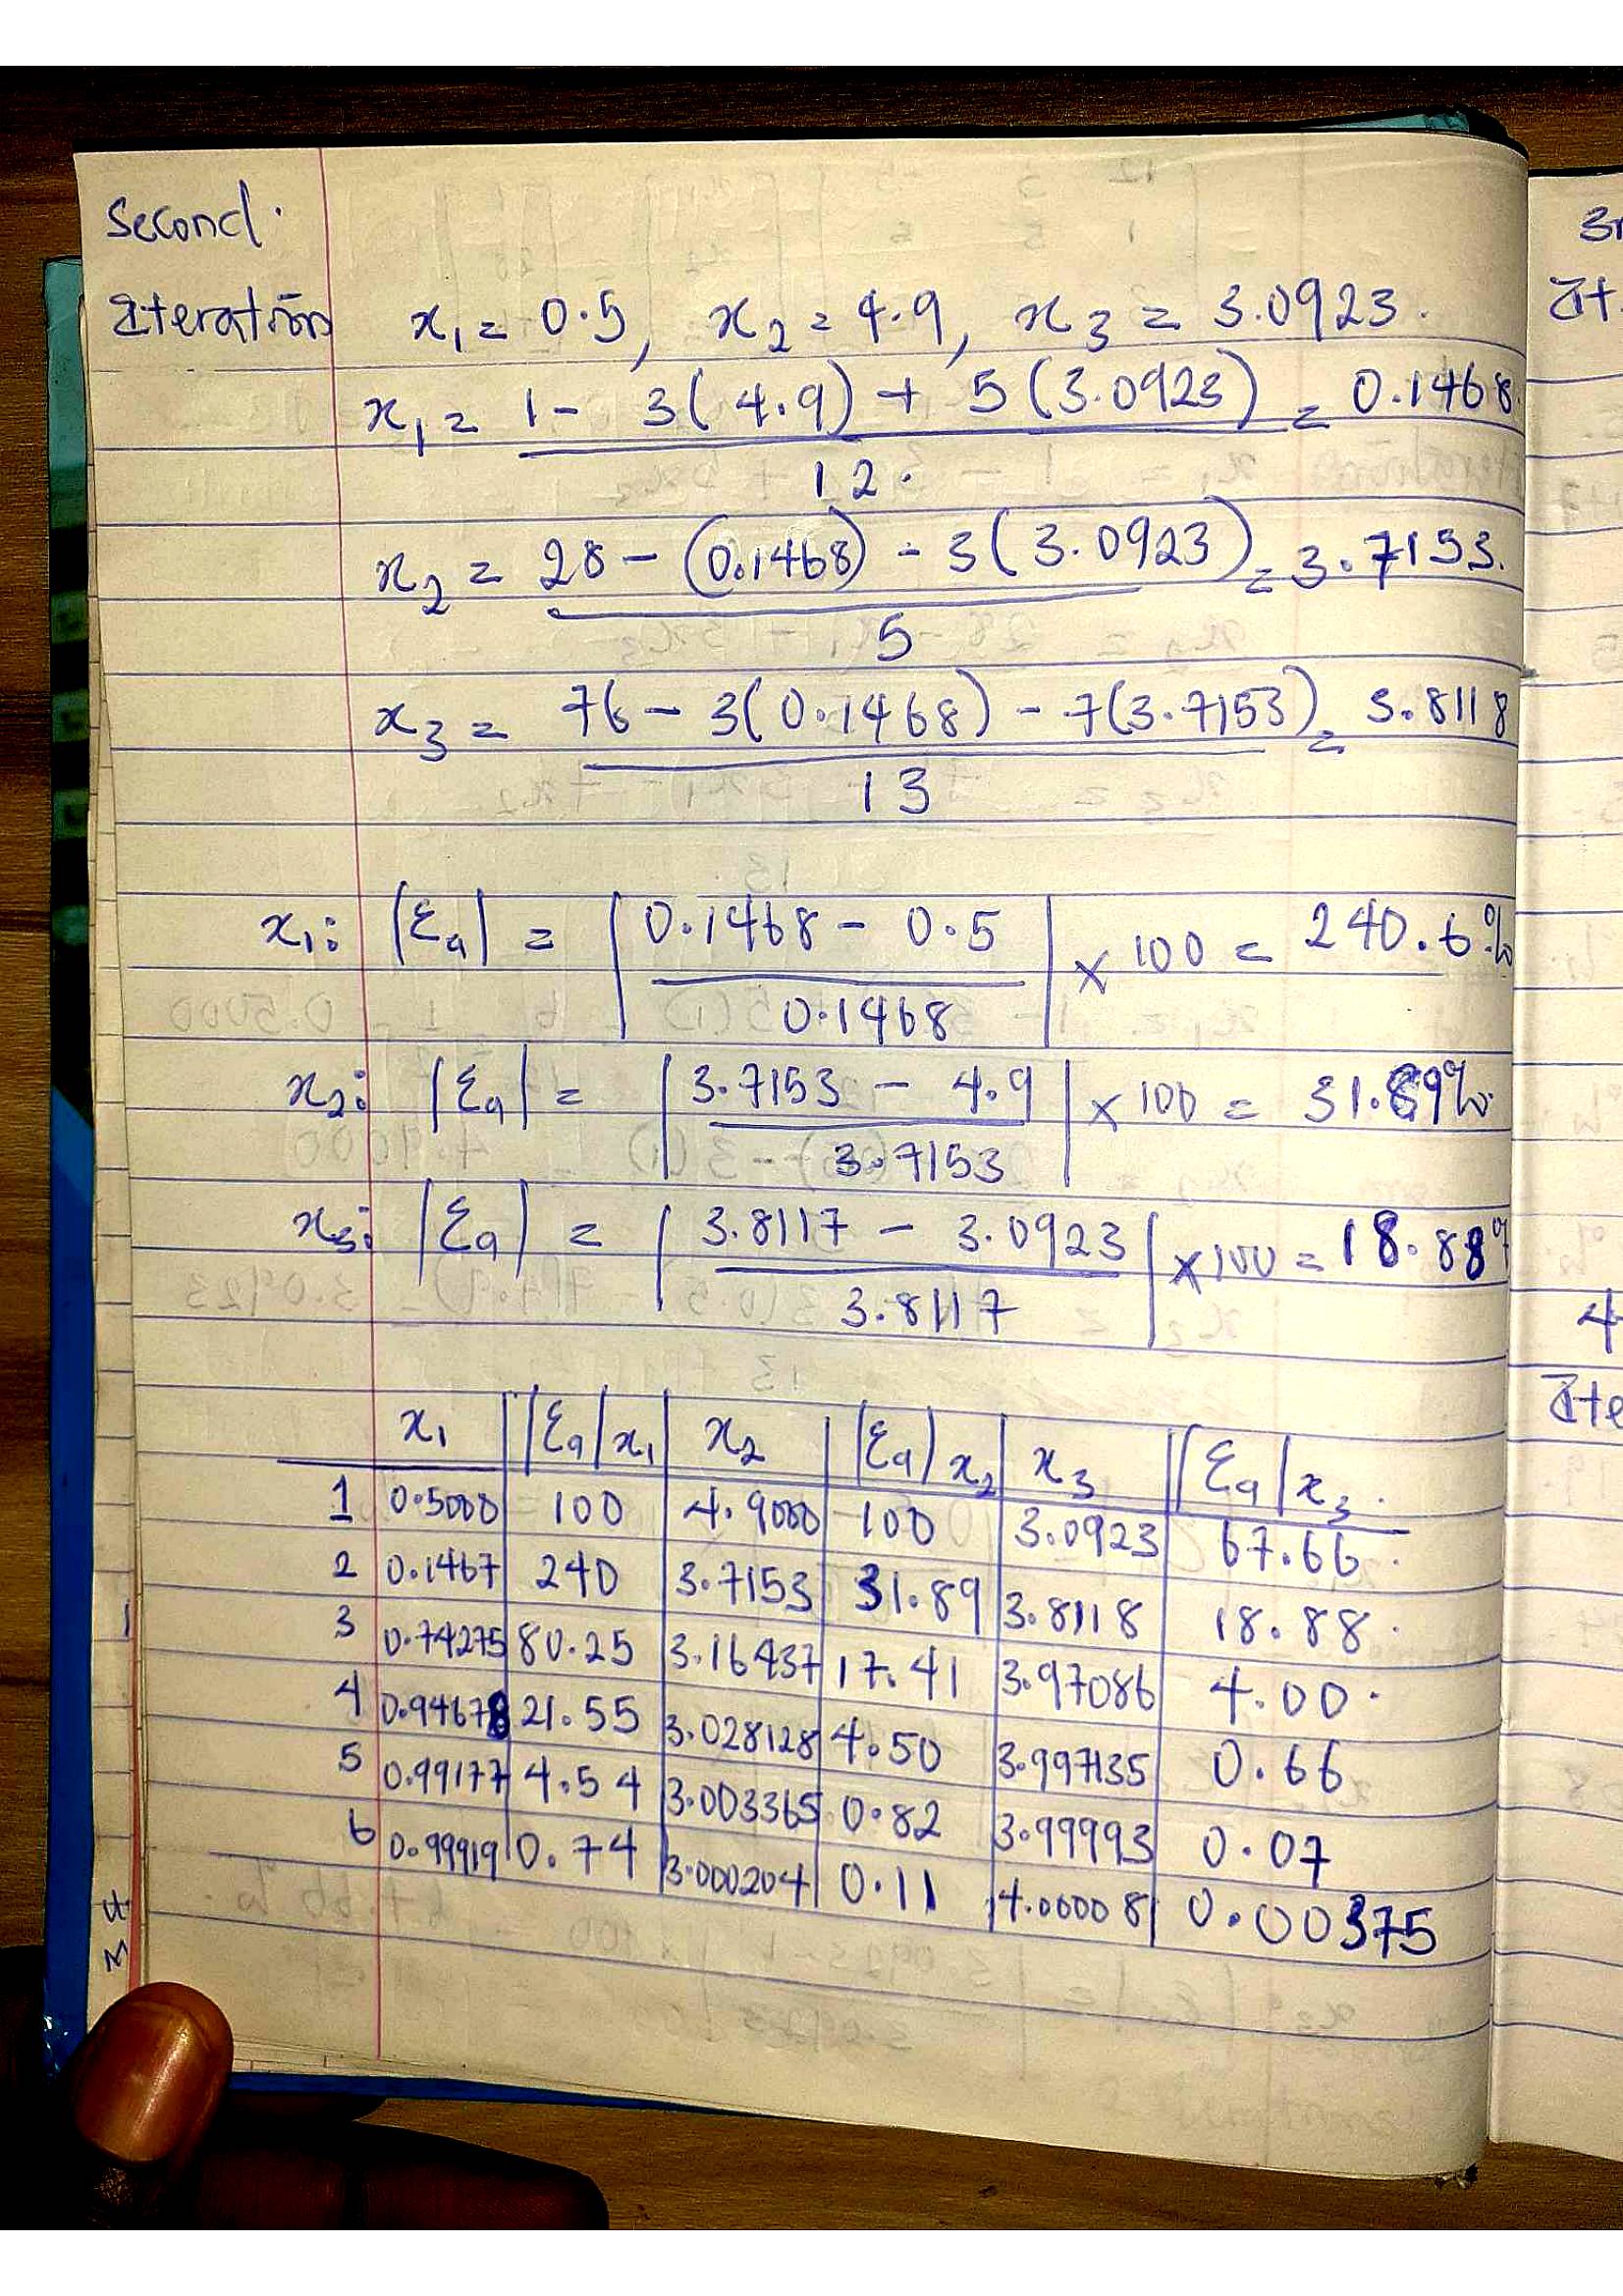 Second.
Iteration x₁ = 0.5, x₂ = 4.9, x₃ = 3.0923.
x₁ = (1 - 3(4.9) + 5(3.0923)) / 12. = 0.1468.
x₂ = (28 - (0.1468) - 3(3.0923)) / 5 = 3.7153.
x₃ = (76 - 3(0.1468) - 7(3.7153)) / 13 = 3.8118
x₁: |Ea| = |(0.1468 - 0.5) / 0.1468| × 100 = 240.6%
x₂: |Ea| = |(3.7153 - 4.9) / 3.7153| × 100 = 31.89%.
x₃: |Ea| = |(3.8117 - 3.0923) / 3.8117| × 100 = 18.88%
x₁ |Ea|x₁ x₂ |Ea|x₂ x₃ |Ea|x₃.
1 0.5000 100 4.9000 100 3.0923 67.66.
2 0.1467 240 3.7153 31.89 3.8118 18.88.
3 0.74275 80.25 3.16437 17.41 3.97086 4.00.
4 0.94678 21.55 3.028128 4.50 3.997135 0.66
5 0.99177 4.54 3.003365 0.82 3.99993 0.07
6 0.99919 0.74 3.000204 0.11 4.00008 0.00375